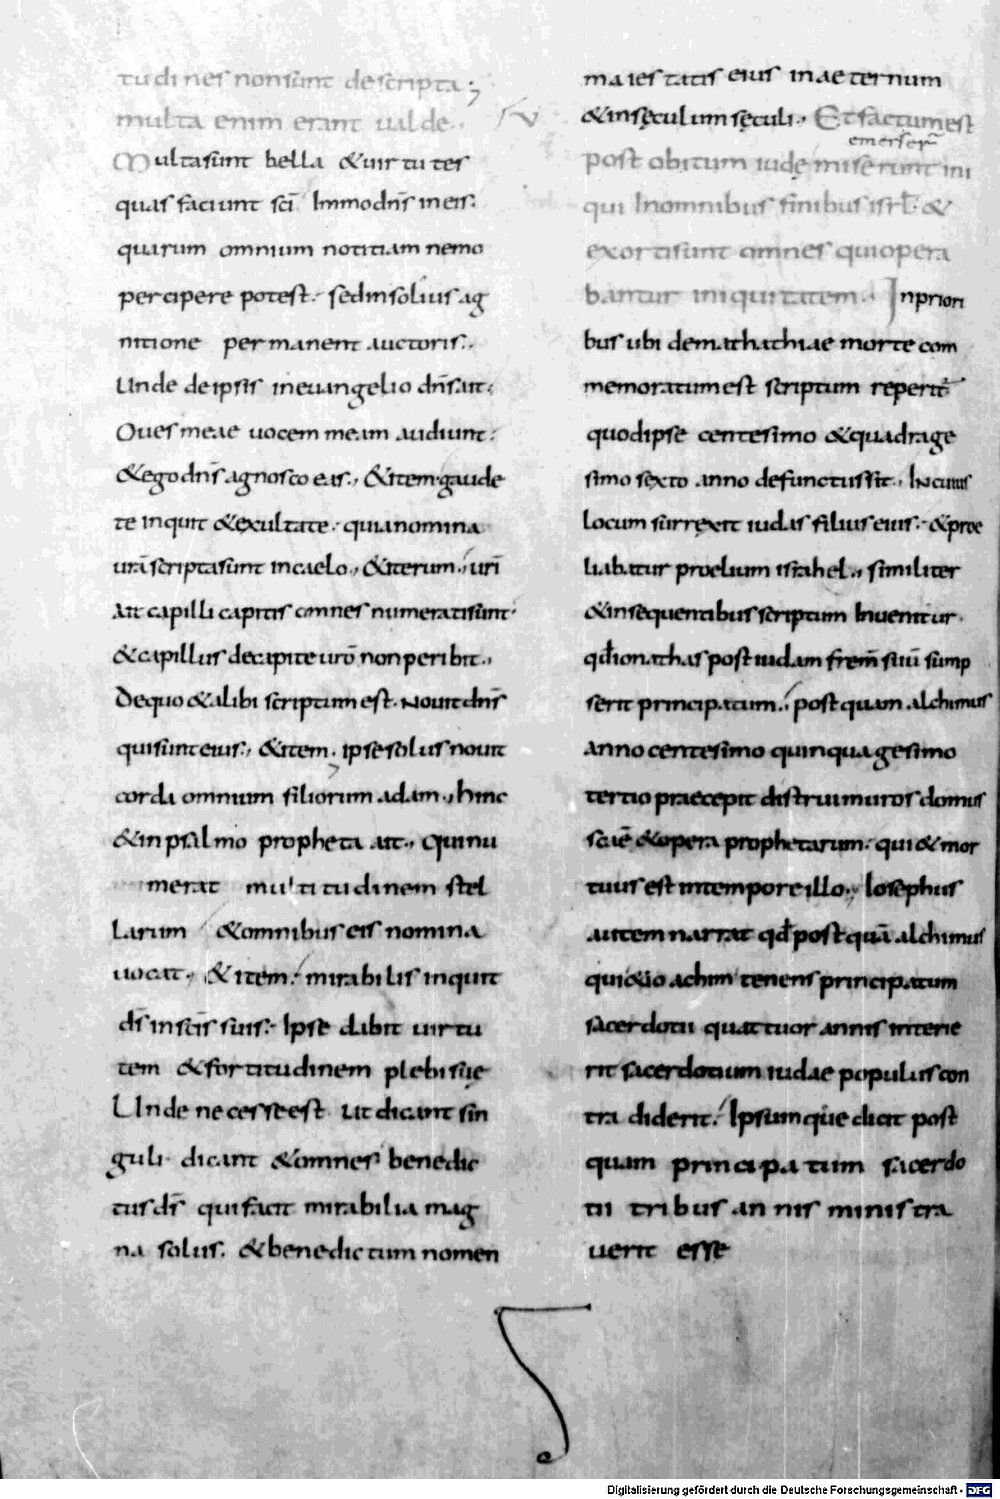 tudines non sunt descripta;
multa enim erant ualde..
Multa sunt bella & uirtutes
quas faciunt scī Immo dn̄s in eis.
quarum omnium notitiam nemo
percipere potest. sed in solius ag
nitione permanent auctoris..
Unde de ipsis in euangelio dn̄s ait:
Oues meae uocem meam audiunt:
& ego dn̄s agnosco eas., & item gaude
te inquit & exultate. quia nomina
urā scripta sunt in caelo., & iterum., urī
ait capilli capitis omnes numerati sunt.
& capillus de capite urō non peribit.,
De quo & alibi scriptum est. Nouit dn̄s
qui sunt eius., & item. ipse solus nouit
corda omnium filiorum adam., hinc
& in psalmo propheta ait., qui nu
merat multitudinem stel
larum & omnibus eis nomina
uocat., & item. mirabilis inquit
ds̄ in scīs suis. Ipse dabit uirtu
tem & fortitudinem plebi suę
Unde necesse est ut dicant sin
guli dicant & omnes benedic
tus ds̄ qui facit mirabilia mag
na solus. & benedictum nomen
maiestatis eius in aeternum
& in sęculum sęculi.. Et factum est
emerserr̄
post obitum iudę miserunt ini
qui In omnibus finibus isrl̄. &
exorti sunt omnes qui opera
bantur iniquitatem.. In priori
bus ubi de mathathiae morte com
memoratum est scriptum reperit̄
quod ipse centesimo & quadrage
simo sexto anno defunctus sit., In cuius
locum surrexit iudas filius eius. & proe
liabatur proelium israhel., similiter
& in sequentibus scriptum Inuenitur.
qd̄ ionathas post iudam frem̄ suū sump
serit principatum., post quam alchimus
anno centesimo quinquagesimo
tertio praecepit distrui muros domus
scāē & opera prophetarum. qui & mor
tuus est in tempore illo., Iosephus
autem narrat qd̄ post quā alchimus
qui & ioachim tenens principatum
sacerdotii quattuor annis interie
rit sacerdotium iudae populus con
tradiderit. Ipsumque dicit post
quam principatum sacerdo
tii tribus annis ministra
uerit esse
Digitalisierung gefördert durch die Deutsche Forschungsgemeinschaft - DFG